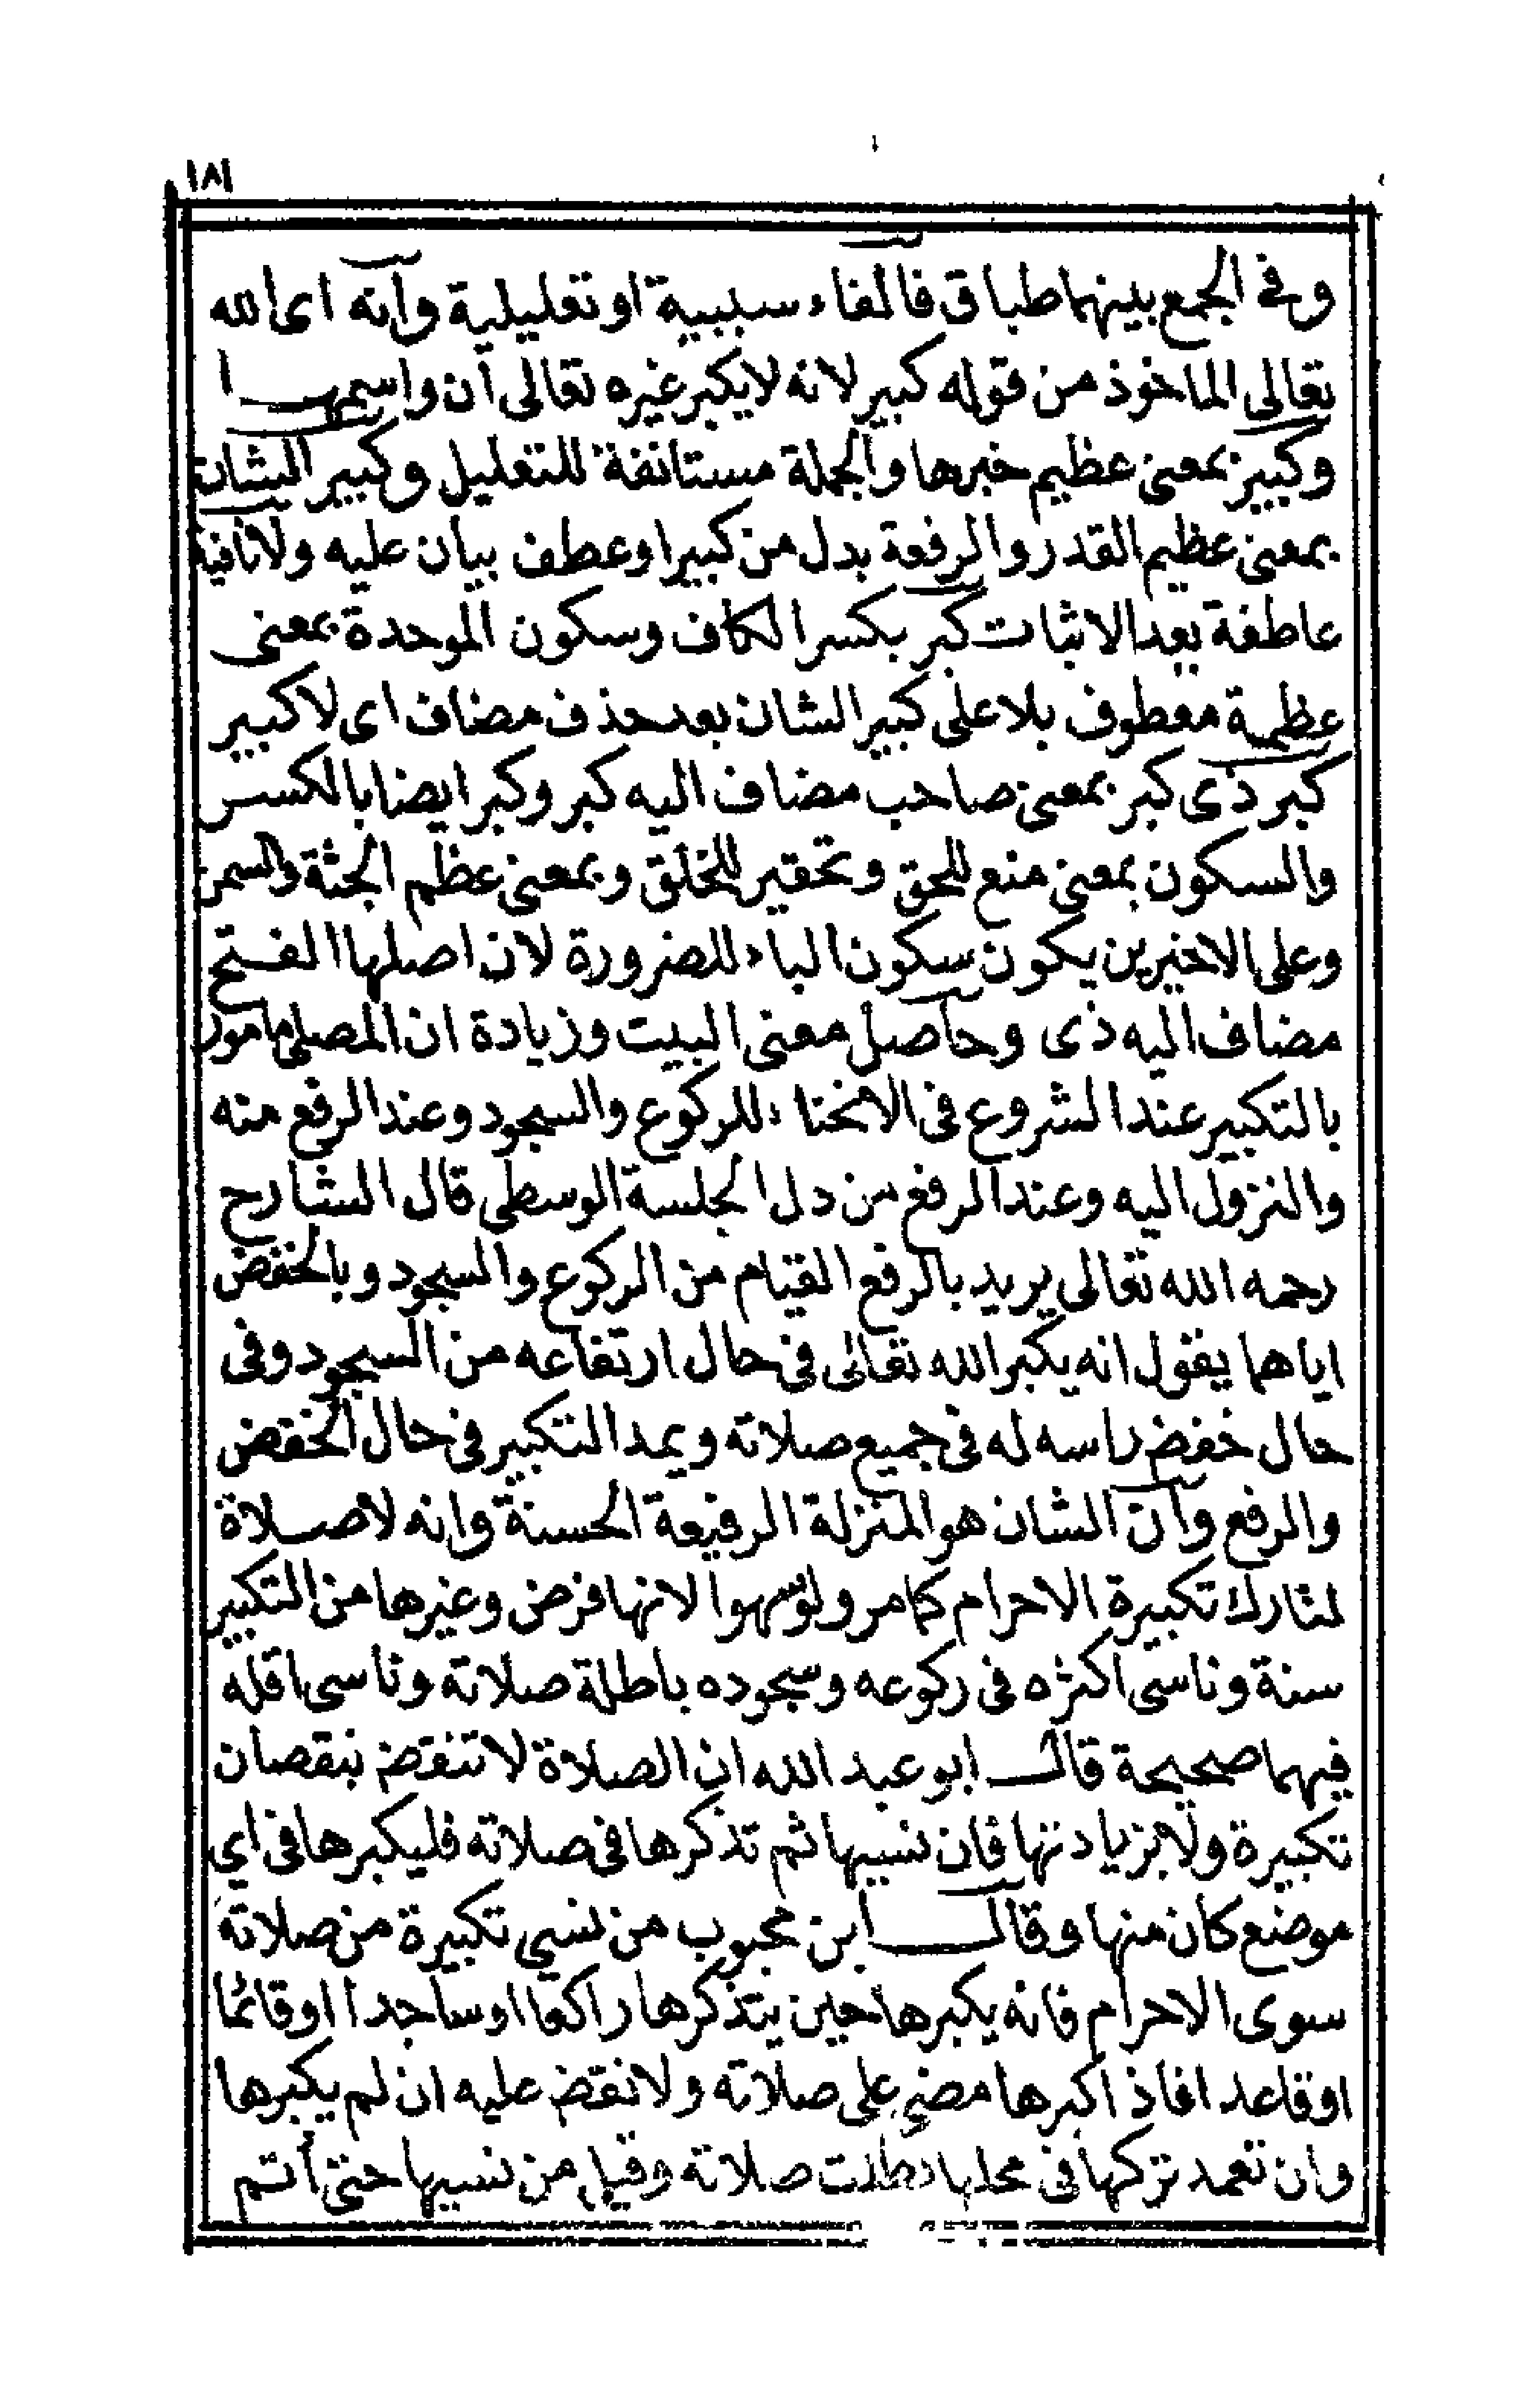 ١٨١
وفي الجمع بينهما طباق فالفاء سببية او تعليلية وانه اى الله
تعالى الماخوذ من قوله كبير لانه لا يكبر غيره تعالى ان واسمها
وكبير بمعنى عظيم خبرها والجملة مستانفة للتعليل وكبير الشان
بمعنى عظيم القدر والرفعة بدل من كبير او عطف بيان عليه ولا نافية
عاطفة بعد الاثبات كبر بكسر الكاف وسكون الموحدة بمعنى
عظمة معطوف بلا على كبير الشان بعد حذف مضاف اى لا كبير
كبر ذى كبر بمعنى صاحب مضاف اليه كبر وكبر ايضا بالكسر
والسكون بمعنى منع للحق وتحقير للخلق وبمعنى عظم الجثة والسمن
وعلى الاخيرين يكون سكون الباء للضرورة لان اصلها الفتح
مضاف اليه ذى وحاصل معنى البيت وزيادة ان المصلى مامور
بالتكبير عند الشروع فى الانحناء للركوع والسجود وعند الرفع منه
والنزول اليه وعند الرفع من دل الجلسة الوسطى قال الشارح
رحمه الله تعالى يريد بالرفع القيام من الركوع والسجود وبالخفض
اياهما يقول انه يكبر الله تعالى فى حال ارتفاعه من السجود وفى
حال خفض راسه له فى جميع صلاته ويمد التكبير فى حال الخفض
والرفع وان الشان هو المنزلة الرفيعة الحسنة وانه لا صلاة
لتارك تكبيرة الاحرام كما مر ولو سهوا لانها فرض وغيرها من التكبير
سنة وناسى اكثره فى ركوعه وسجوده باطلة صلاته وناسى اقله
فيهما صحيحة قال ابو عبد الله ان الصلاة لا تنقض بنقصان
تكبيرة ولا بزيادتها فان نسيها ثم تذكرها فى صلاته فليكبرها فى اي
موضع كان منها وقال ابن محبوب من نسي تكبيرة من صلاته
سوى الاحرام فانه يكبرها حين يتذكرها راكعا او ساجدا او قائما
او قاعدا فاذا كبرها مضى على صلاته ولا نقض عليه ان لم يكبرها
وان تعمد تركها فى محلها بطلت صلاته وقيل من نسيها حتى أتم